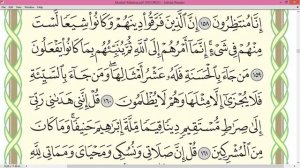 إِنَّا مُنتَظِرُونَ ١٥٨ إِنَّ الَّذِينَ فَرَّقُوا دِينَهُمْ وَكَانُوا شِيَعًا لَّسْتَ
مِنْهُمْ فِي شَيْءٍ إِنَّمَا أَمْرُهُمْ إِلَى اللَّهِ ثُمَّ يُنَبِّئُهُم بِمَا كَانُوا يَفْعَلُونَ
١٥٩ مَن جَاءَ بِالْحَسَنَةِ فَلَهُ عَشْرُ أَمْثَالِهَا وَمَن جَاءَ بِالسَّيِّئَةِ
فَلَا يُجْزَىٰ إِلَّا مِثْلَهَا وَهُمْ لَا يُظْلَمُونَ ١٦٠ قُلْ إِنَّنِي هَدَانِي رَبِّي
إِلَىٰ صِرَاطٍ مُّسْتَقِيمٍ دِينًا قِيَمًا مِّلَّةَ إِبْرَاهِيمَ حَنِيفًا وَمَا كَانَ
مِنَ الْمُشْرِكِينَ ١٦١ قُلْ إِنَّ صَلَاتِي وَنُسُكِي وَمَحْيَايَ وَمَمَاتِي